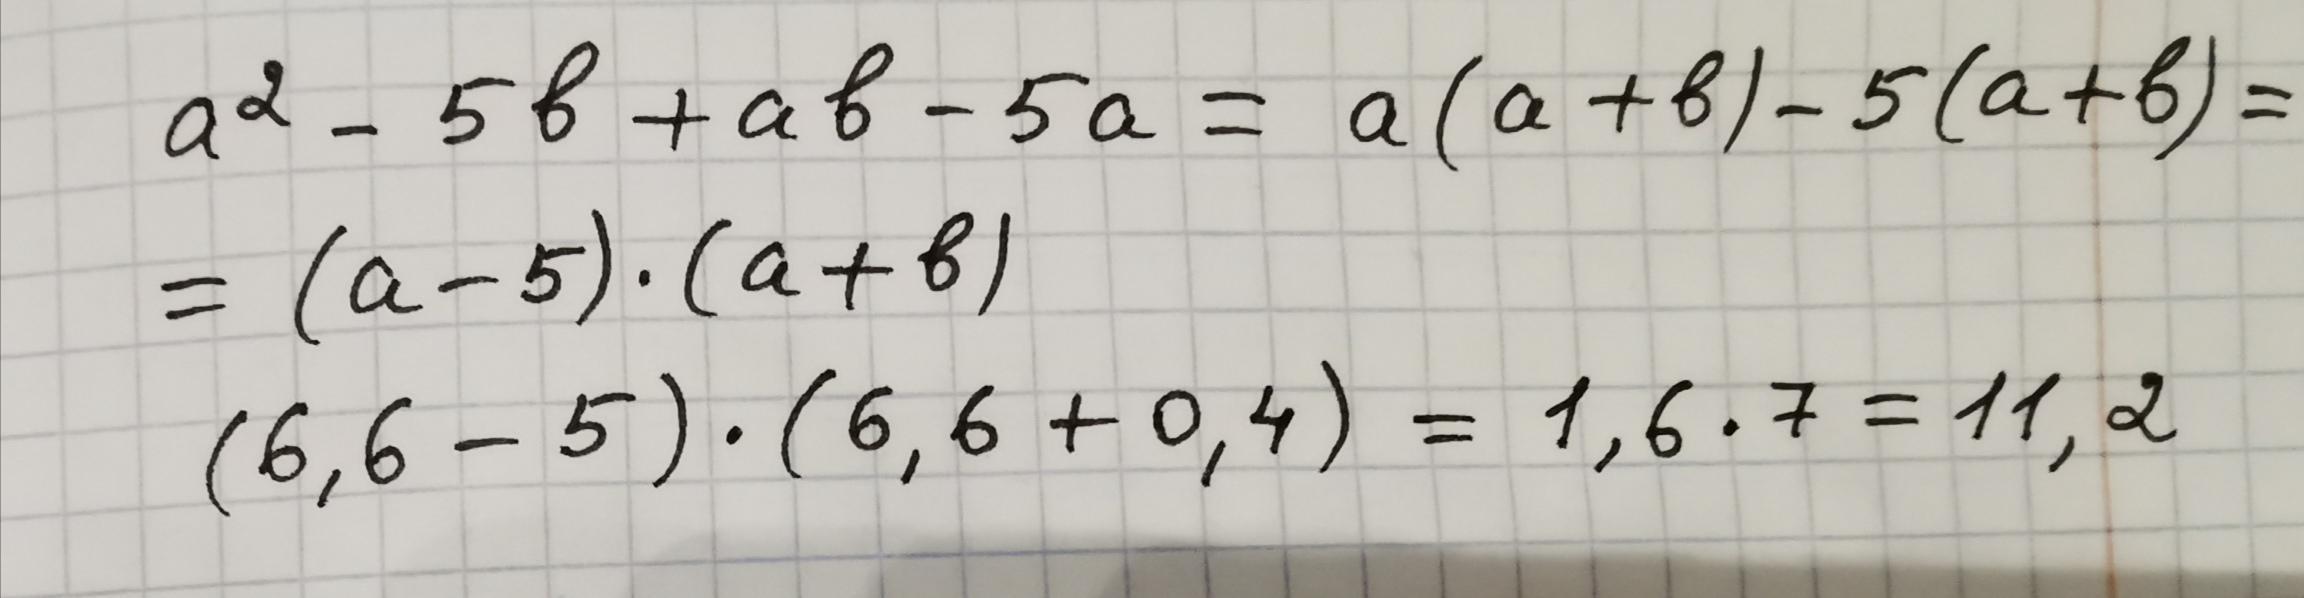 a² - 5b + ab - 5a = a(a+b) - 5(a+b) =
= (a-5)·(a+b)
(6,6-5)·(6,6+0,4) = 1,6·7 = 11,2